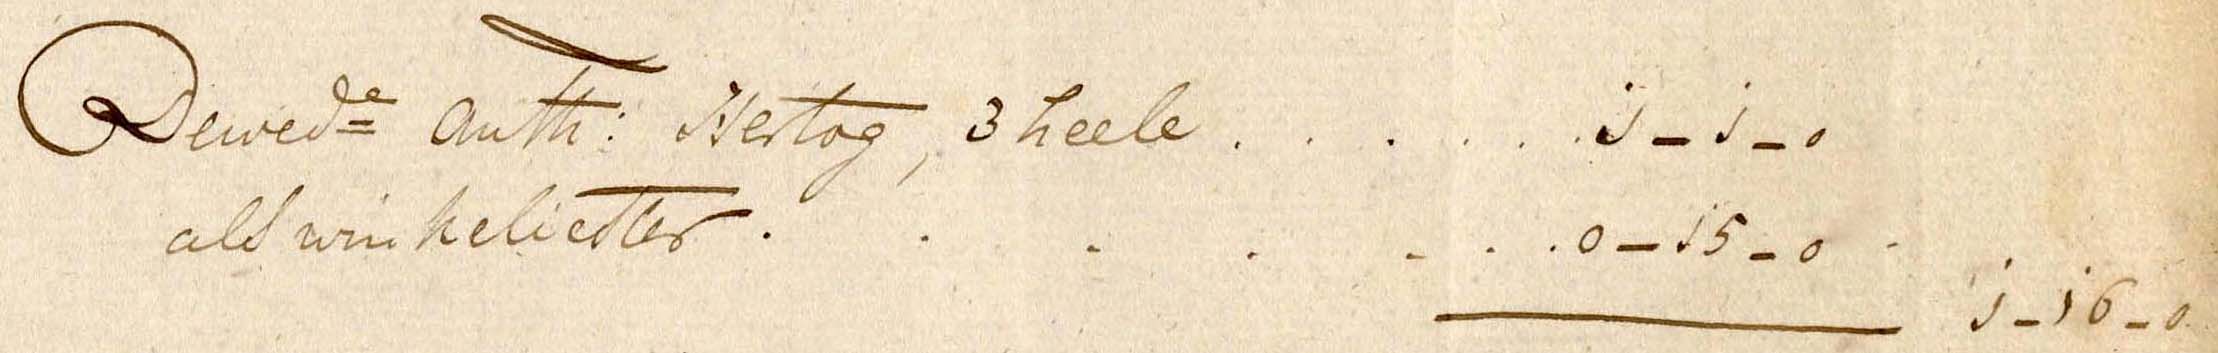 De wed:e Anth: Hertog, 3 heele . . . . . . 1 - 1 - 0
als winkelierster . . . . . . . 0 - 15 - 0 -
1 - 16 - 0